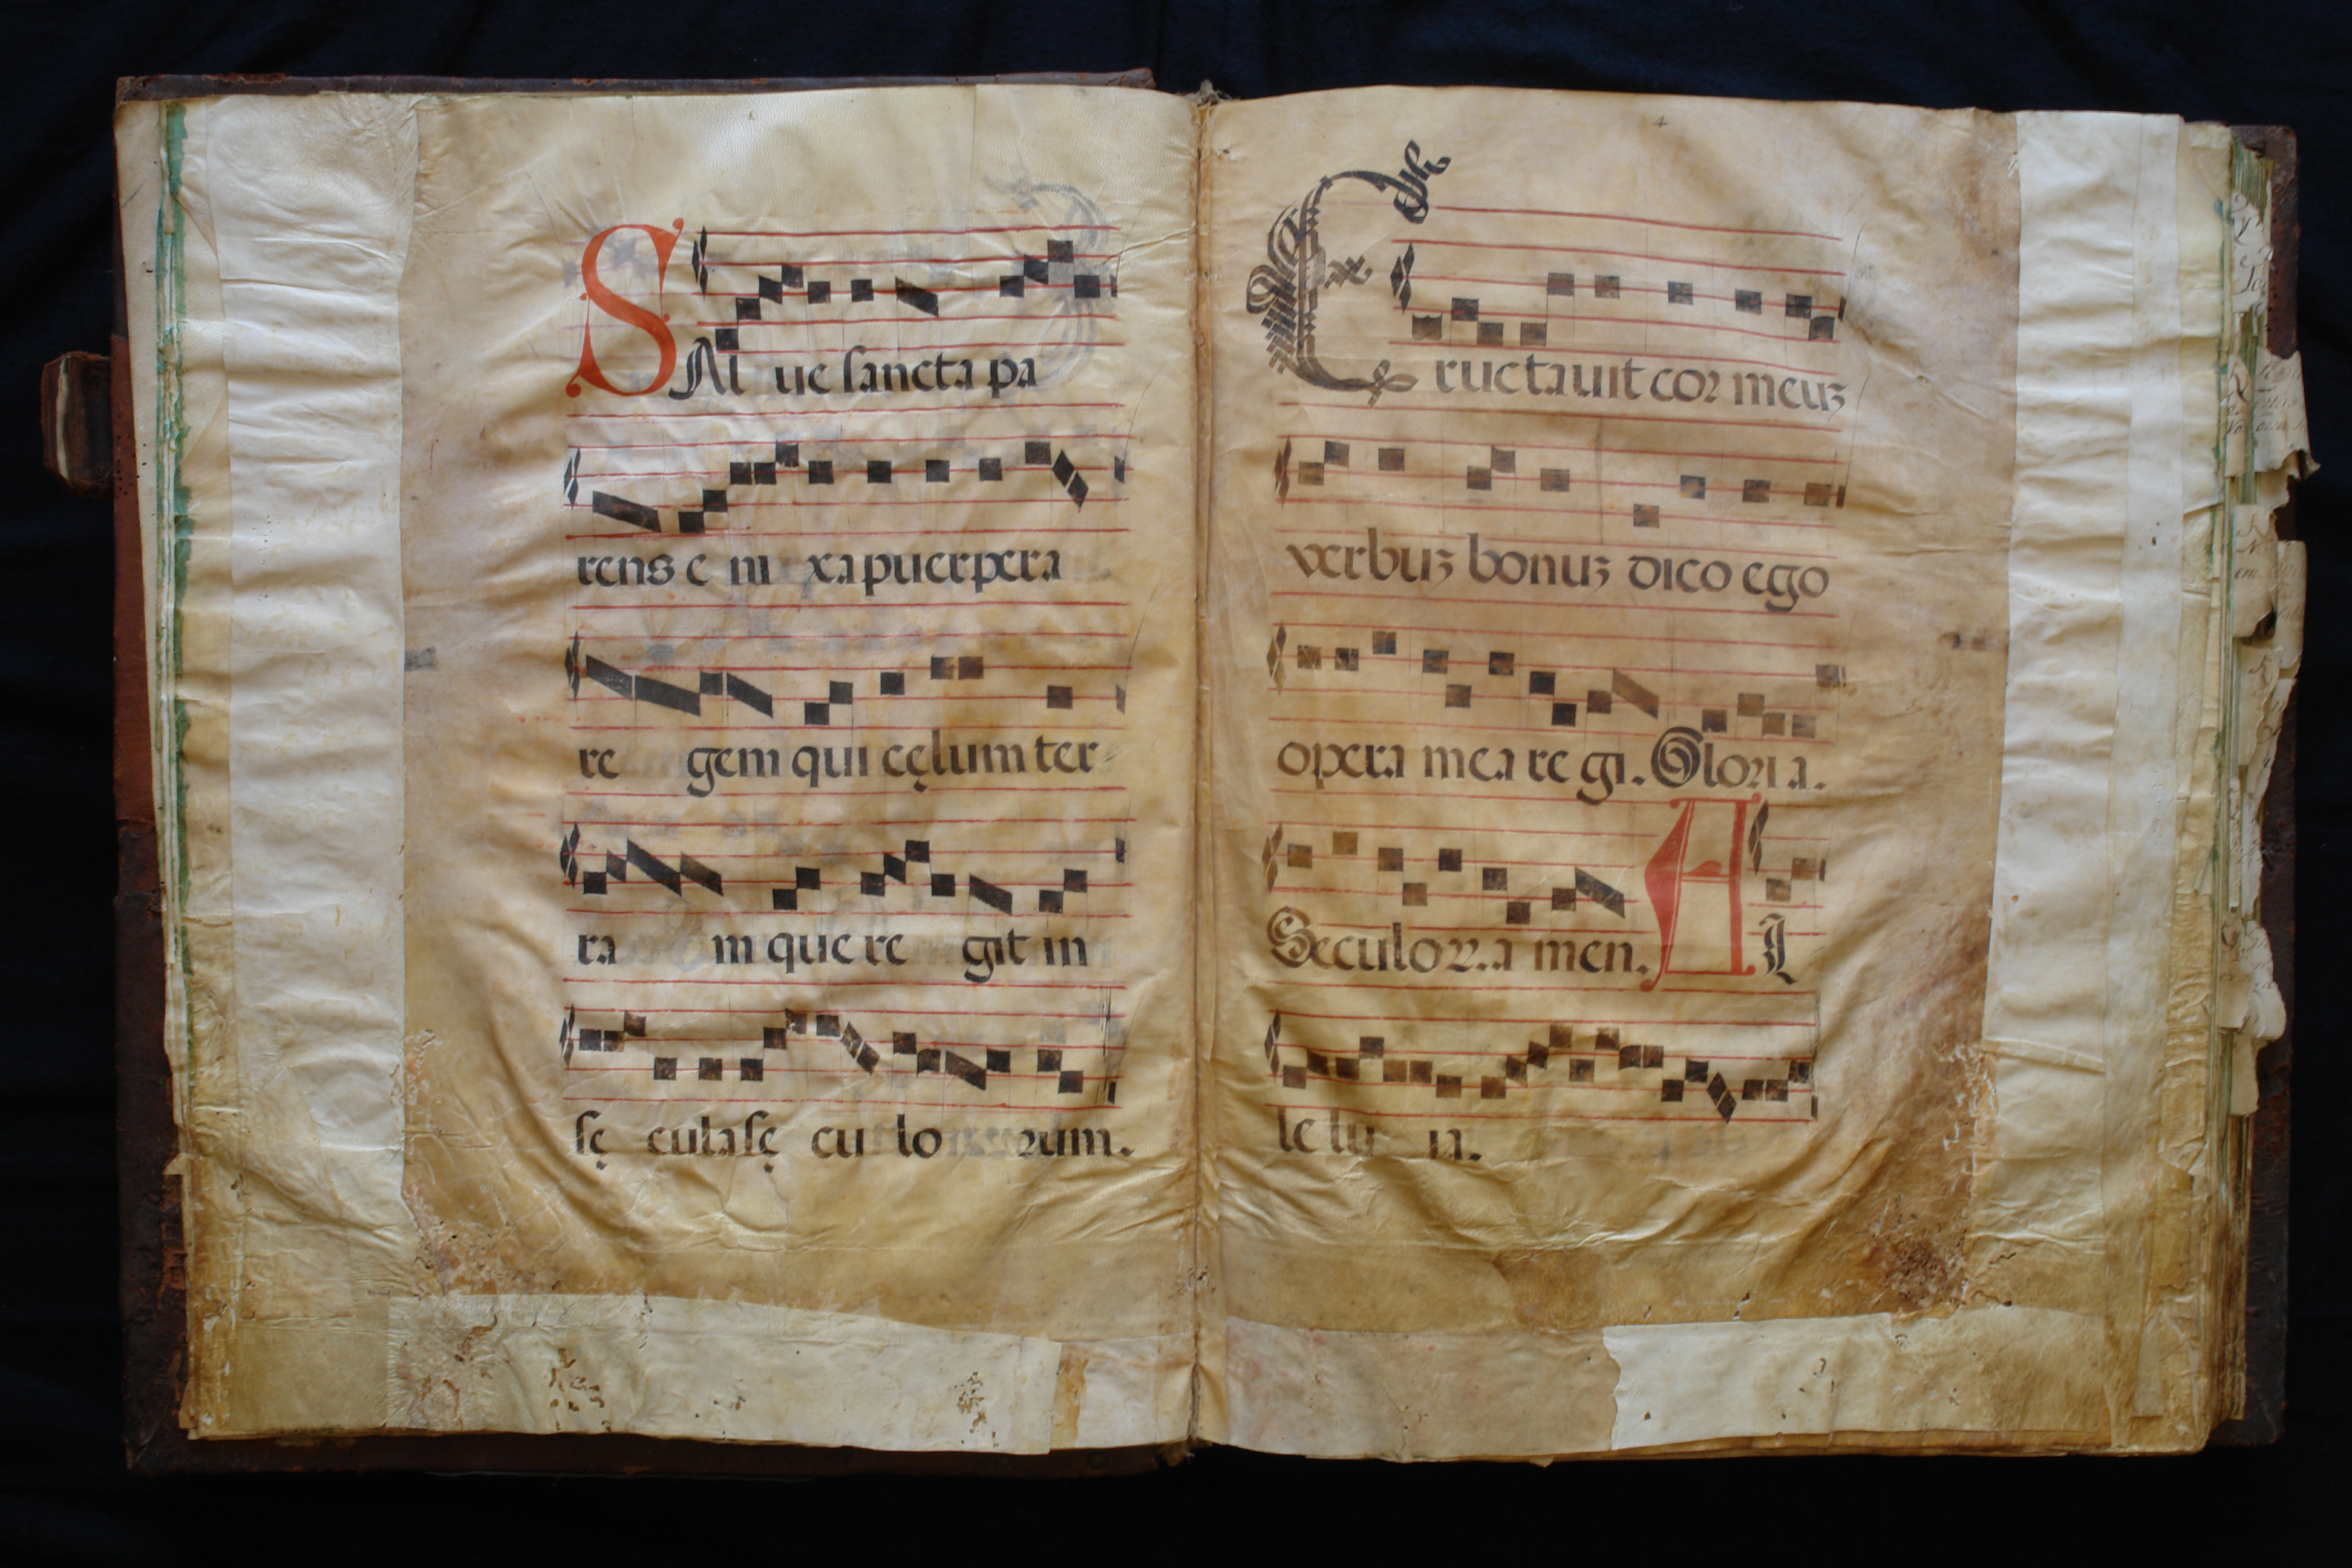 SAl ue sancta pa
rens e ni xa puerpera
re gem qui cęlum ter-
ra m que re git in
sę cula sę cu lo rum.
Eructauit cor meuz
verbuz bonuz dico ego
opera mea re gi. Gloria.
Seculoꝝ. a men. AL
le lu ia.